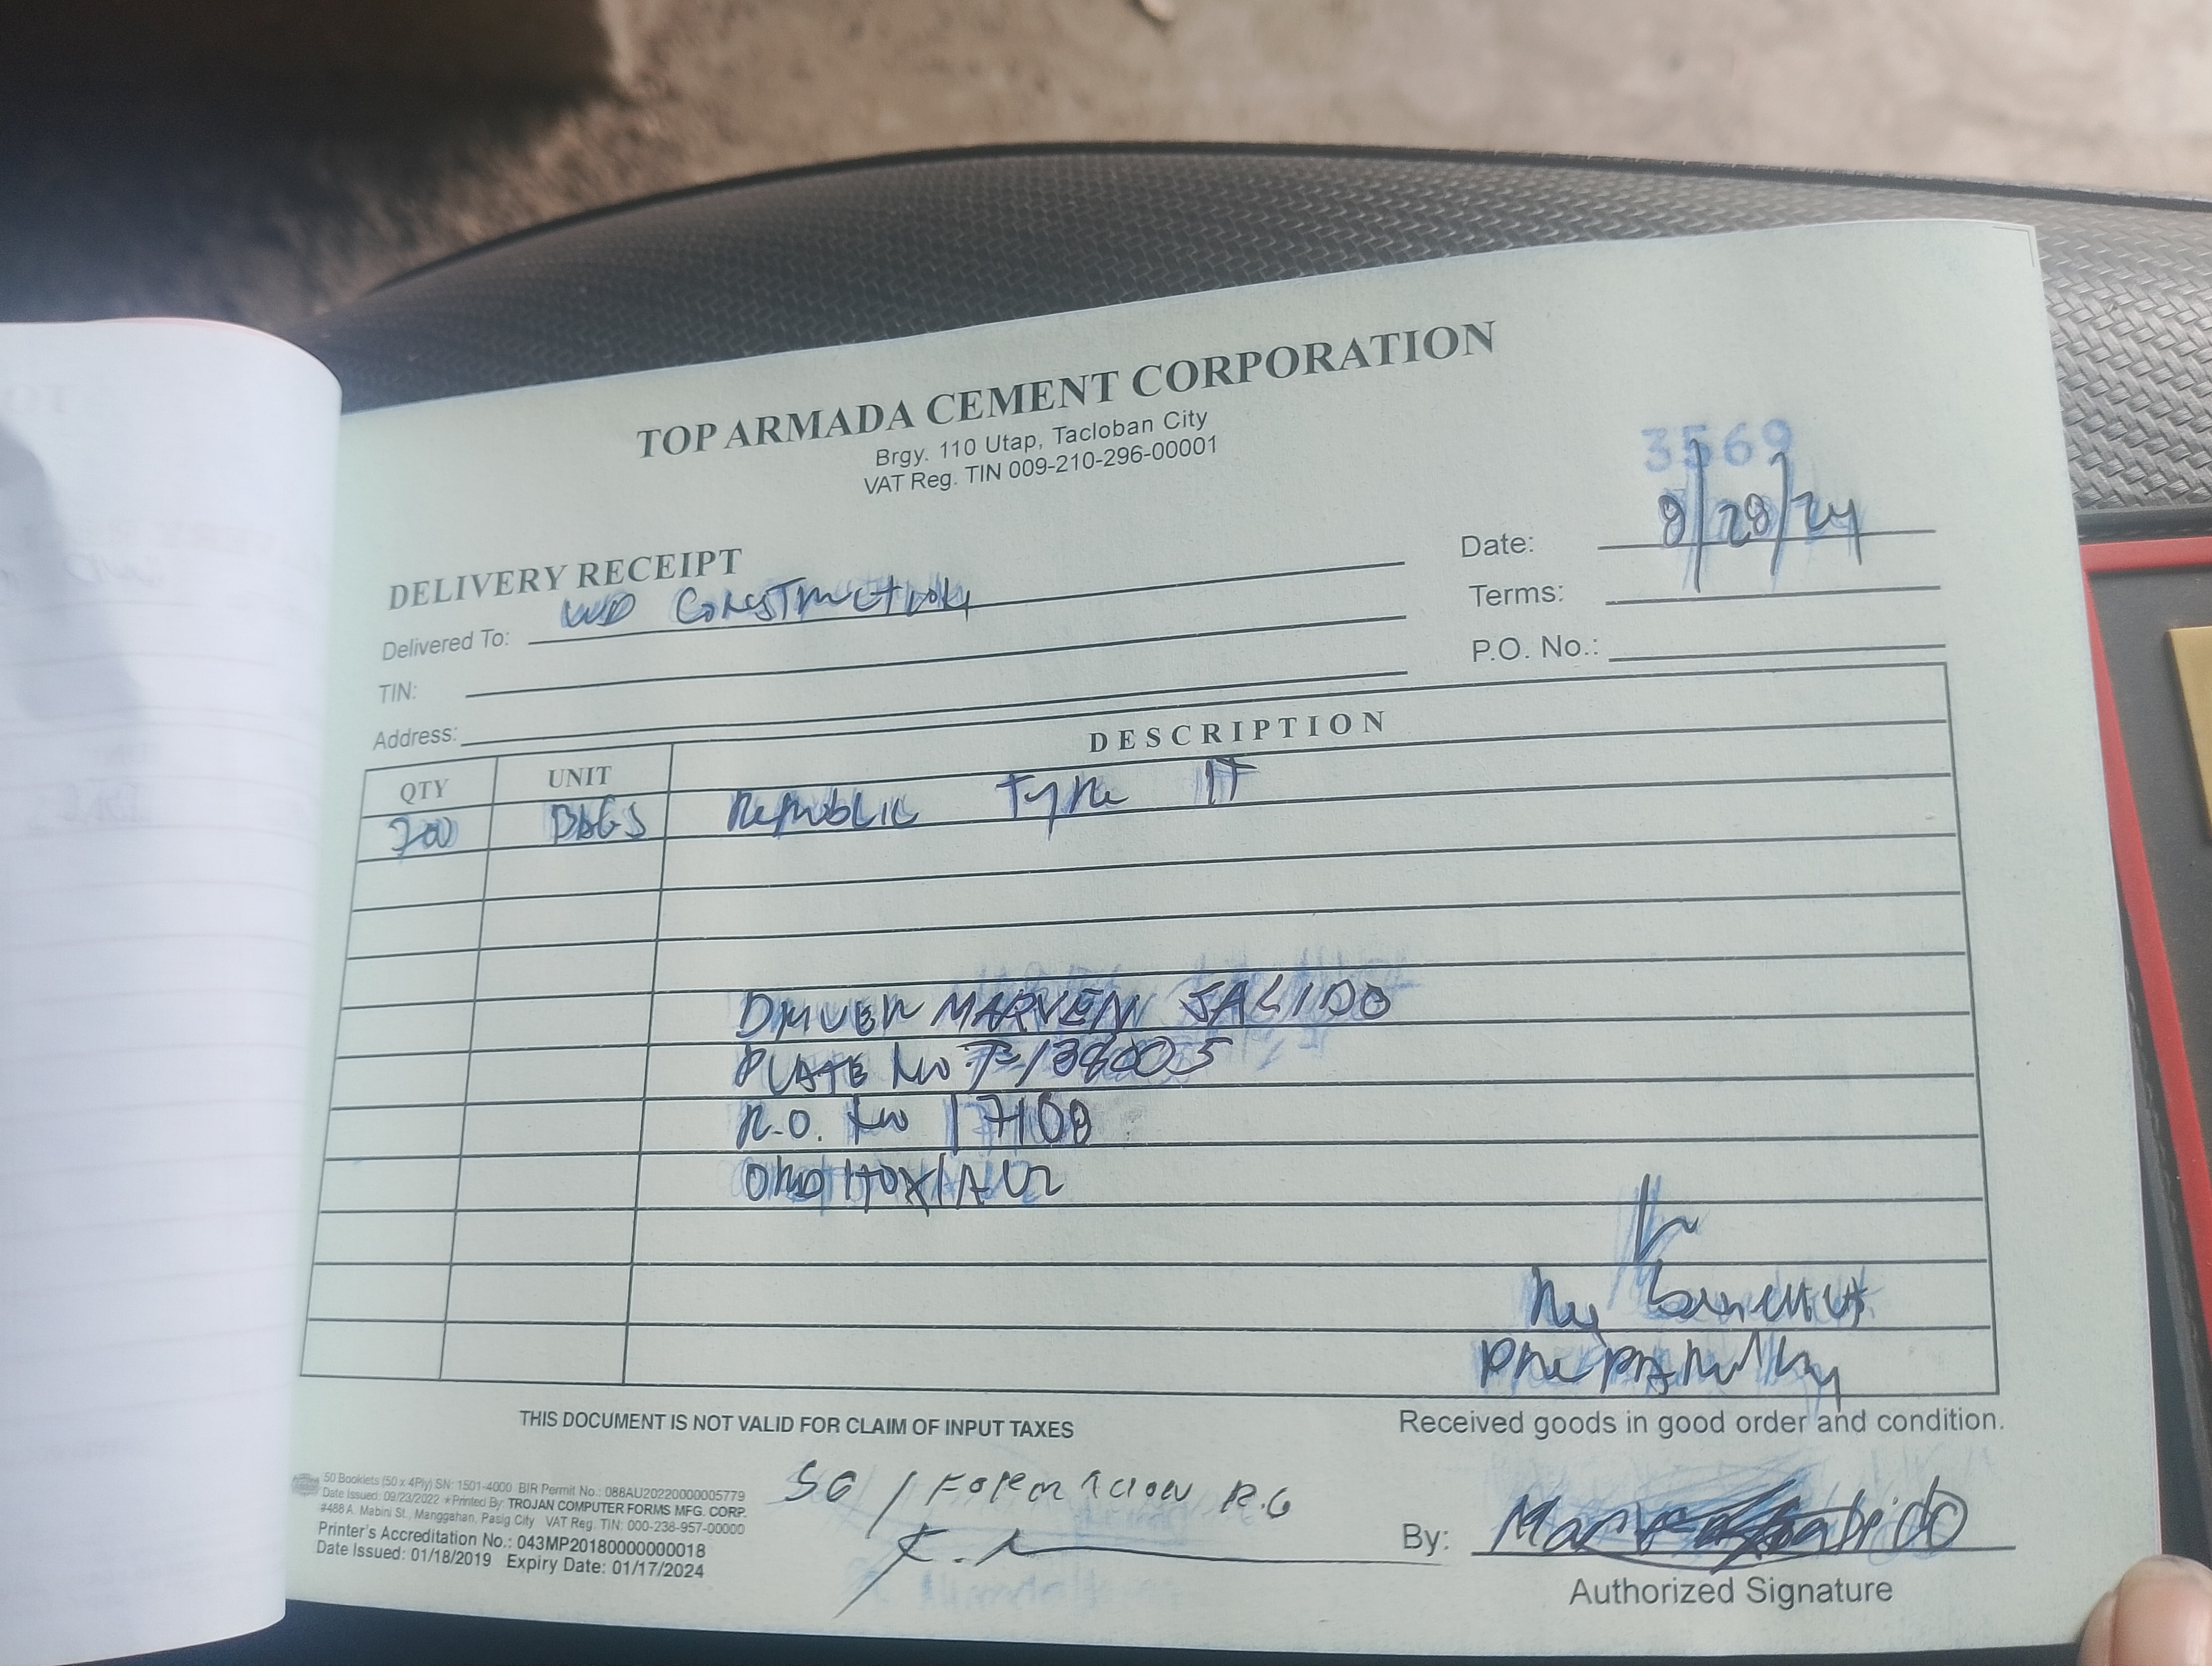 TOP ARMADA CEMENT CORPORATION
Brgy. 110 Utap, Tacloban City
VAT Reg. TIN 009-210-296-00001
3569
DELIVERY RECEIPT
Date: 8/28/24
Delivered To: WD Construction
Terms:
TIN:
P.O. No.:
Address:
QTY UNIT DESCRIPTION
700 BAGS Republic Type 1T
DRIVER MARVEN SALIDO
PLATE No
R.O. No 17108
Prepared by
THIS DOCUMENT IS NOT VALID FOR CLAIM OF INPUT TAXES
Received goods in good order and condition.
50 Booklets (50 x 4Ply) SN: 1501-4000 BIR Permit No.: 088AU20220000005779
Date Issued: 09/23/2022 *Printed By: TROJAN COMPUTER FORMS MFG. CORP.
#488 A. Mabini St., Manggahan, Pasig City VAT Reg. TIN: 000-238-957-00000
Printer's Accreditation No.: 043MP20180000000018
Date Issued: 01/18/2019 Expiry Date: 01/17/2024
SG / R.G
By:
Authorized Signature